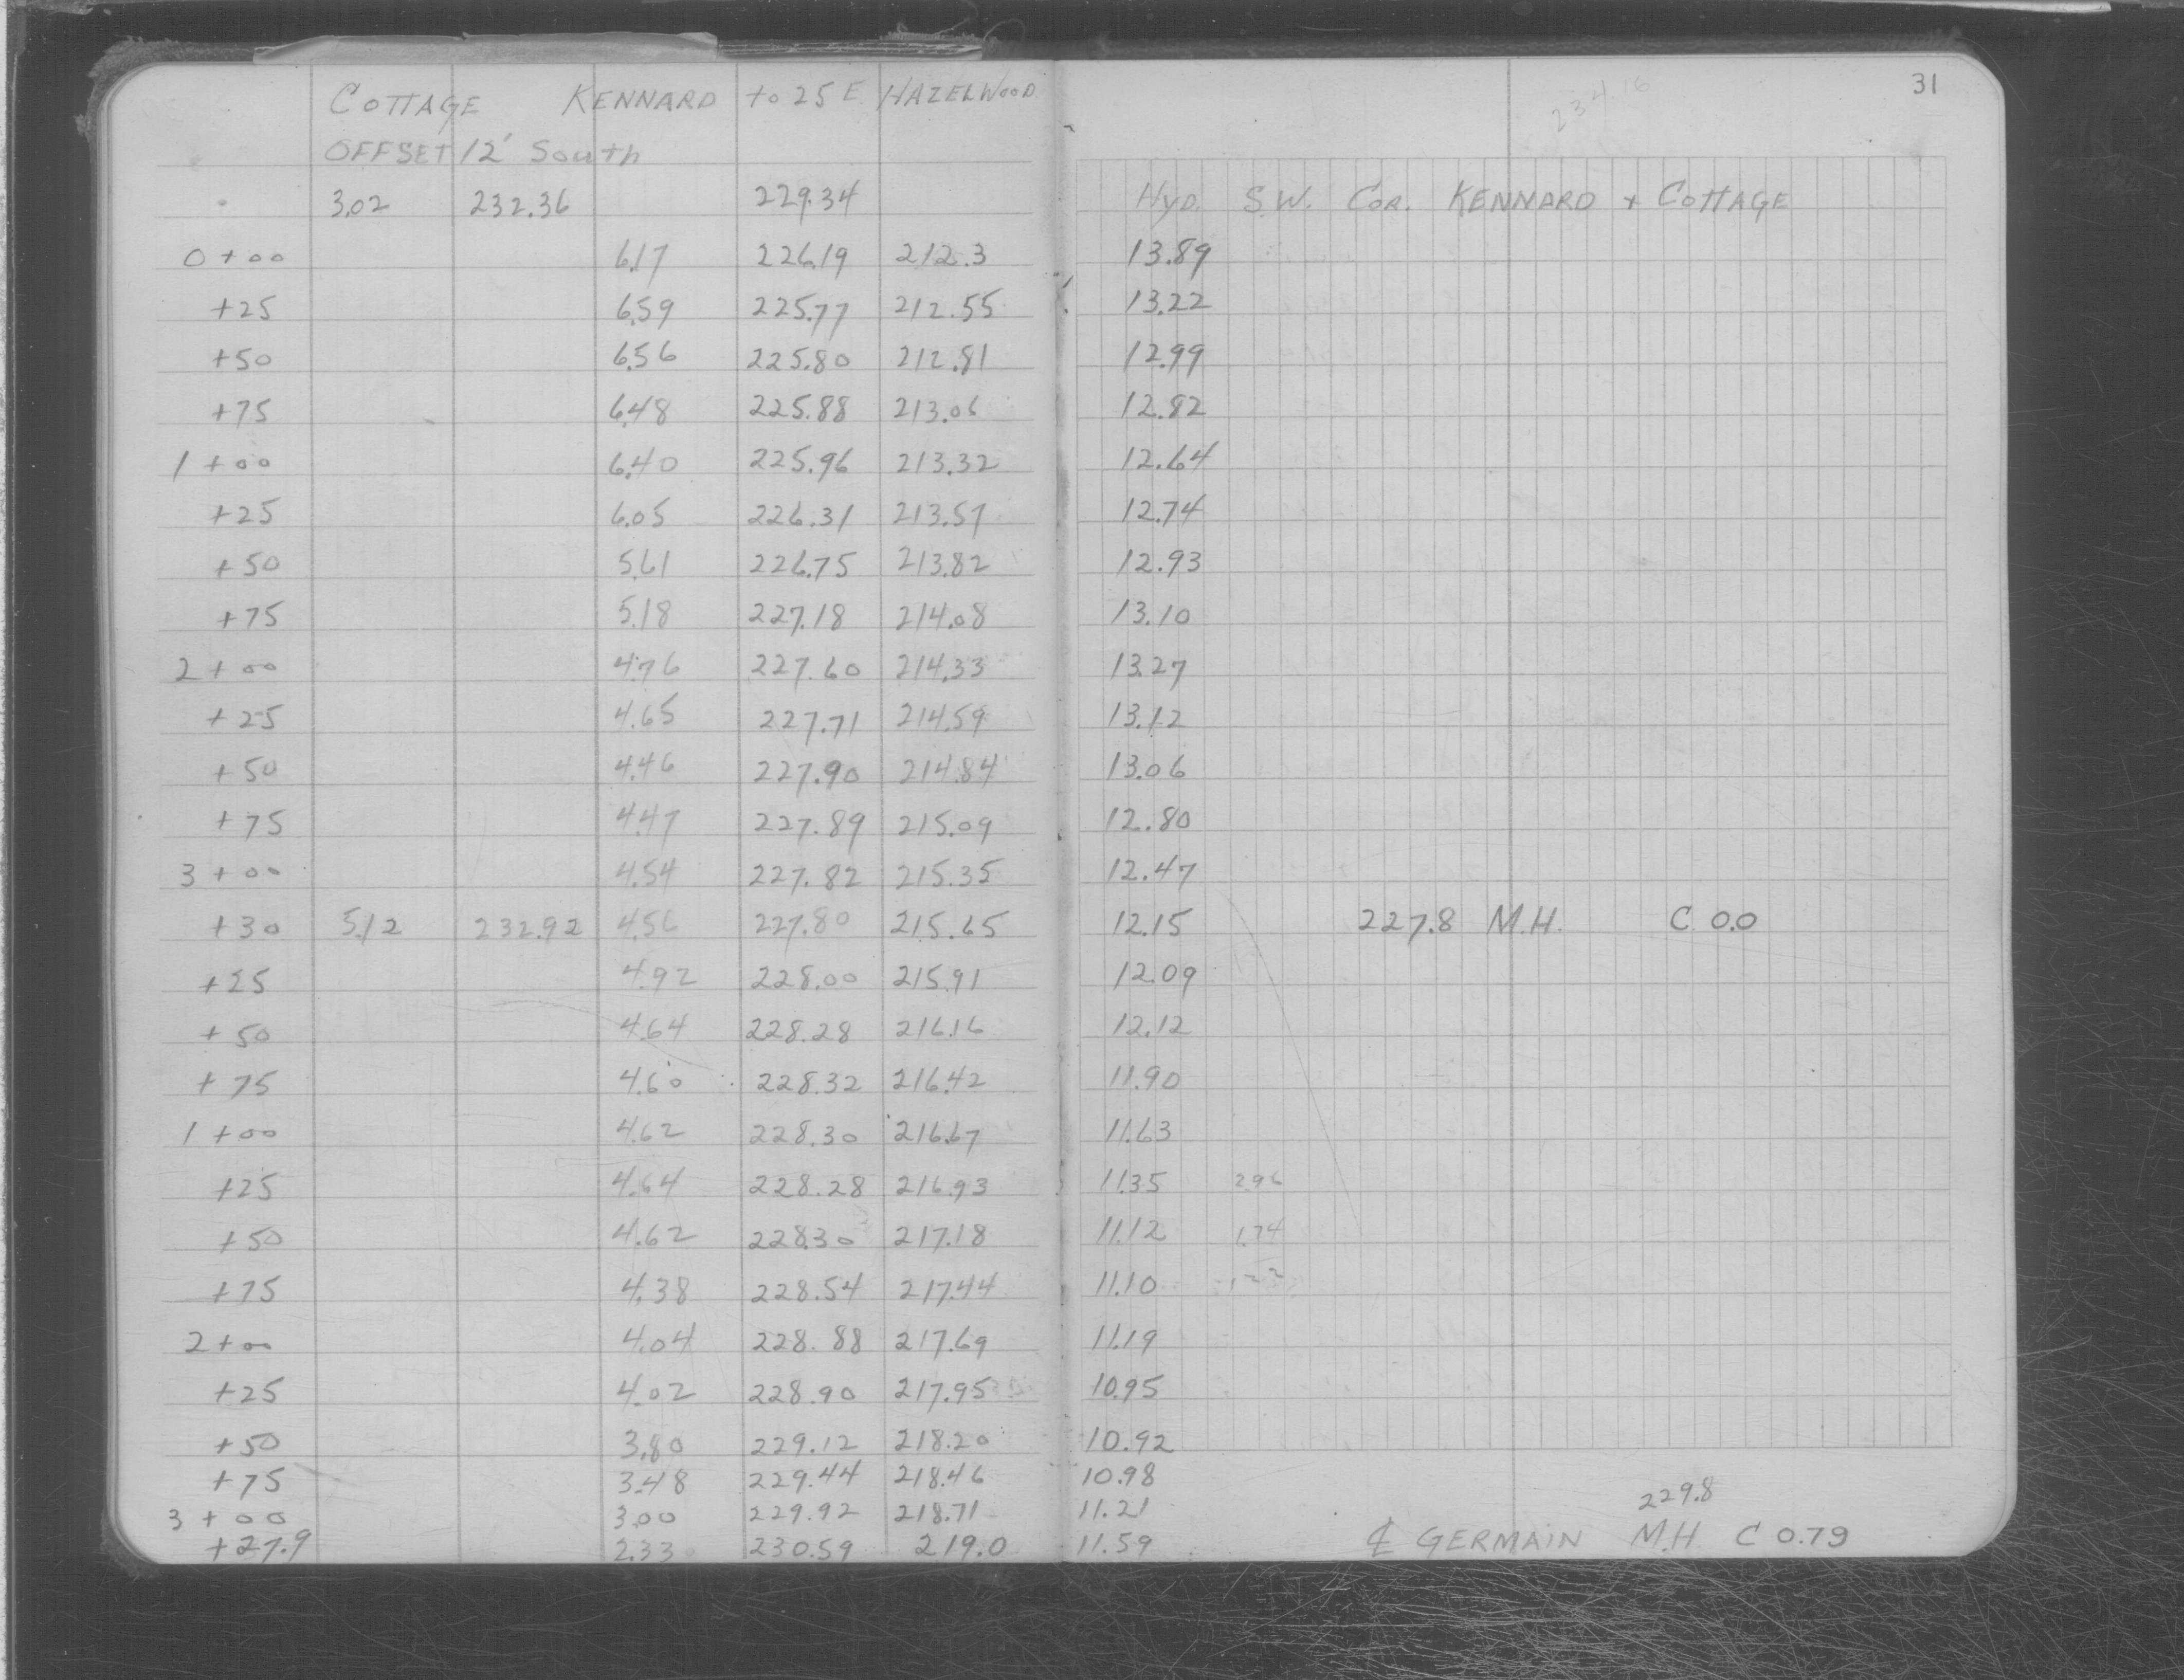 31
234.16
COTTAGE KENNARD to 25 E HAZELWOOD
OFFSET 12' South
3.02 232.36 229.34 Hyd. S.W. Cor. KENNARD + COTTAGE
0+00 6.17 226.19 212.3 13.89
+25 6.59 225.77 212.55 13.22
+50 6.56 225.80 212.81 12.99
+75 6.48 225.88 213.06 12.82
1+00 6.40 225.96 213.32 12.64
+25 6.05 226.31 213.57 12.74
+50 5.61 226.75 213.82 12.93
+75 5.18 227.18 214.08 13.10
2+00 4.76 227.60 214.33 13.27
+25 4.65 227.71 214.59 13.12
+50 4.46 227.90 214.84 13.06
+75 4.47 227.89 215.09 12.80
3+00 4.54 227.82 215.35 12.47
+30 5.12 232.92 4.56 227.80 215.65 12.15 227.8 M.H. C 0.0
+25 4.92 228.00 215.91 12.09
+50 4.64 228.28 216.16 12.12
+75 4.60 228.32 216.42 11.90
1+00 4.62 228.30 216.67 11.63
+25 4.64 228.28 216.93 11.35 2.96
+50 4.62 228.30 217.18 11.12 1.74
+75 4.38 228.54 217.44 11.10 1.22
2+00 4.04 228.88 217.69 11.19
+25 4.02 228.90 217.95 10.95
+50 3.80 229.12 218.20 10.92
+75 3.48 229.44 218.46 10.98
3+00 3.00 229.92 218.71 11.21 229.8
+27.9 2.33 230.59 219.0 11.59 ℄ GERMAIN M.H. C 0.79